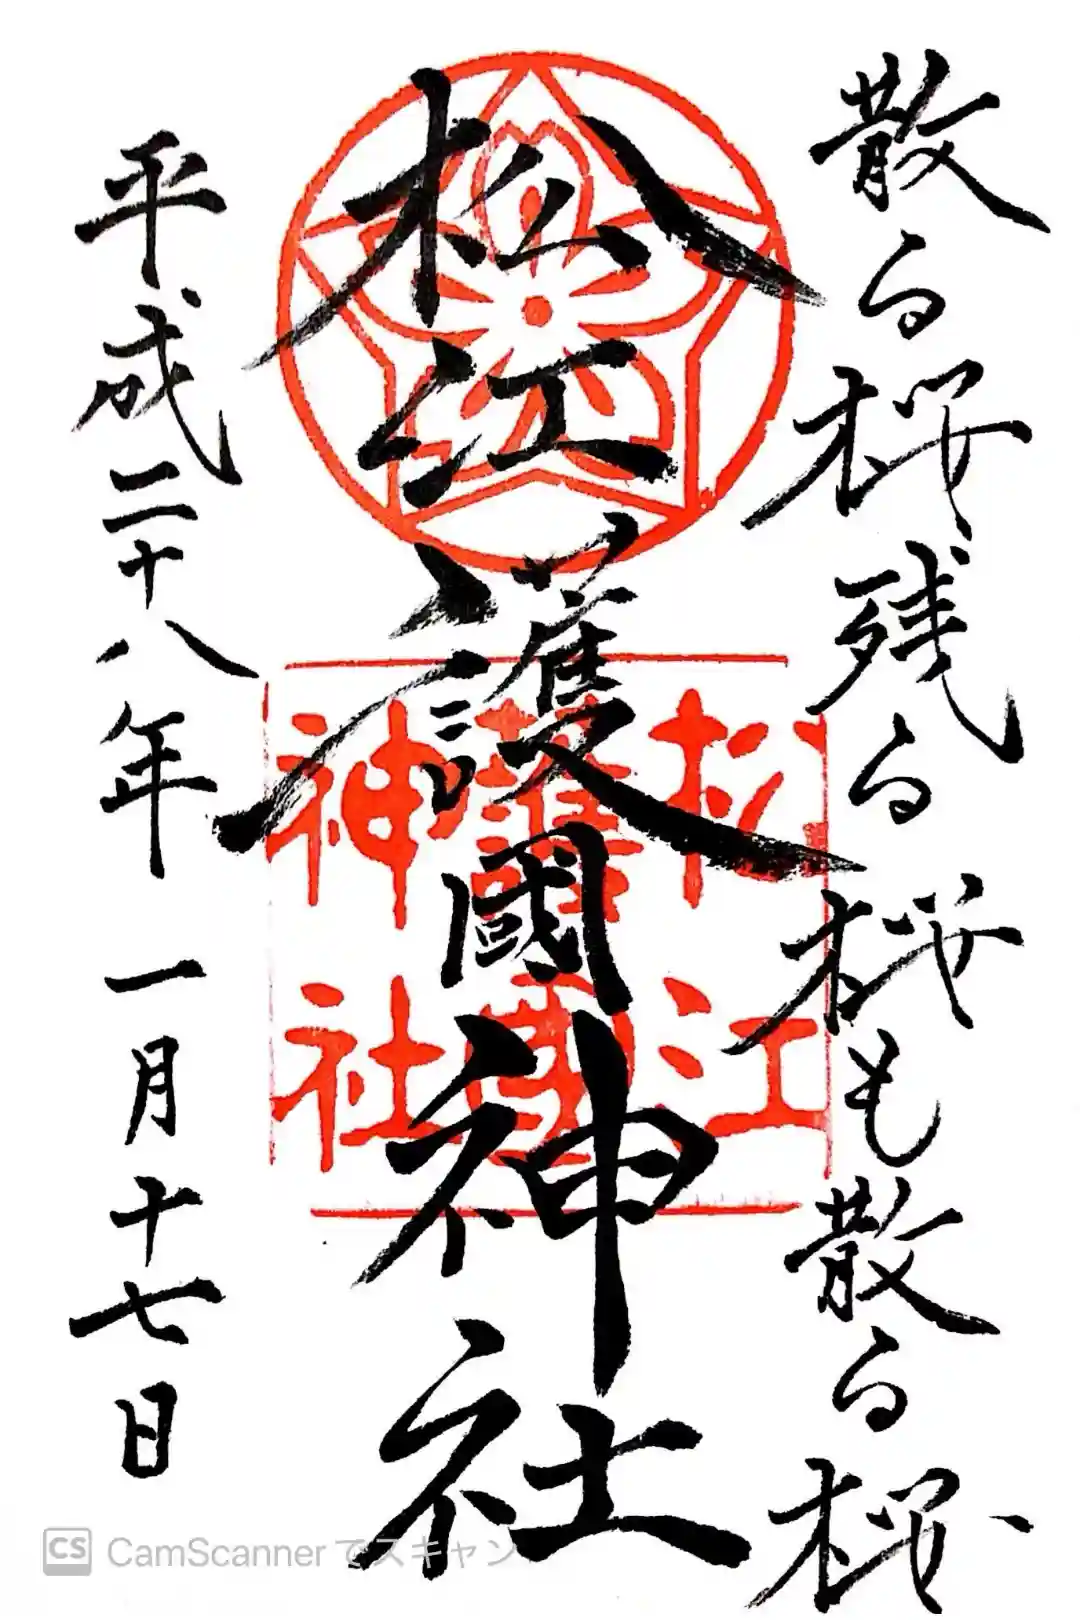 散る桜残る桜も散る桜
松江護國神社
松江
護國
神社
平成二十八年一月十七日
CS CamScannerでスキャン